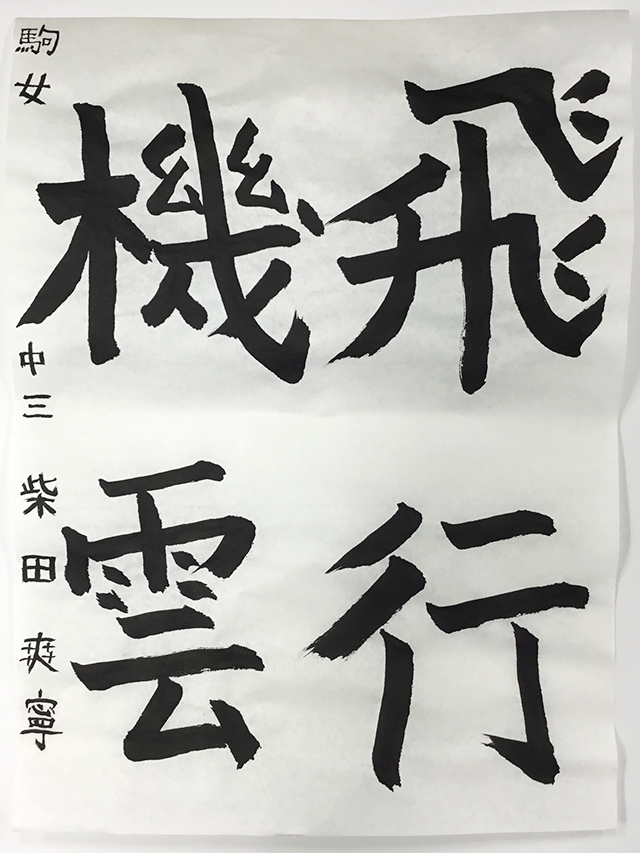 飛行
機雲
駒女 中三 柴田爽寧